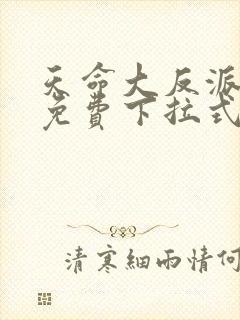 天命大反派
免費下拉式
清寒細雨情何